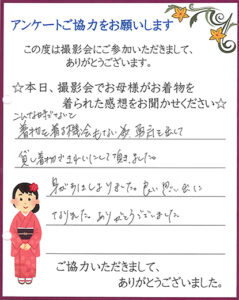 アンケートご協力をお願いします
この度は撮影会にご参加いただきまして、
ありがとうございます。
☆本日、撮影会でお母様がお着物を
着られた感想をお聞かせください☆
こんな時でないと
着物を着る機会もない為
貸し着物できれいにして頂きました。
身がひきしまりました。良い思い出に
なりました。ありがとうございました
ご協力いただきまして、
ありがとうございました。